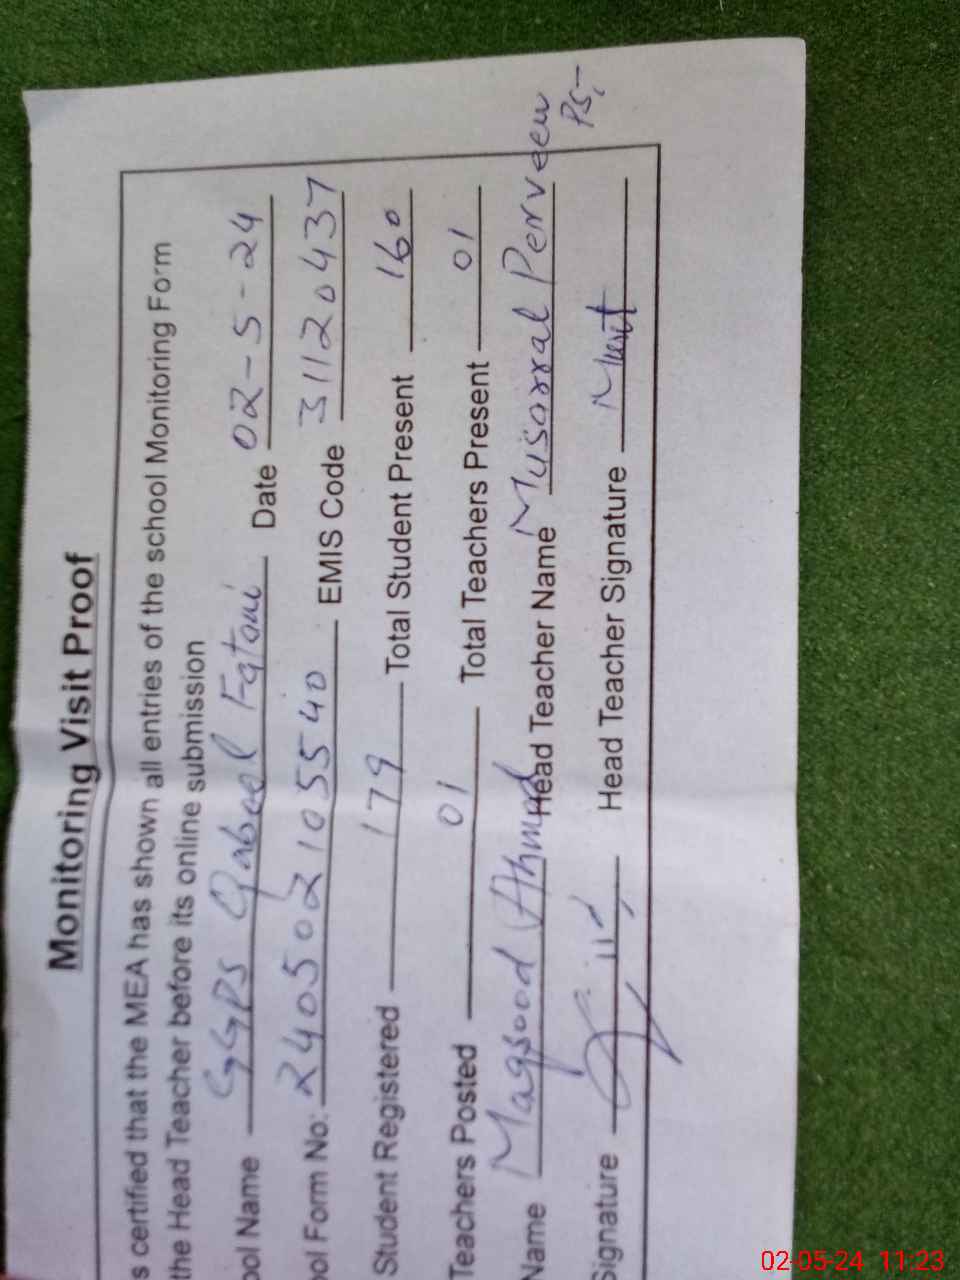 Monitoring Visit Proof
s certified that the MEA has shown all entries of the school Monitoring Form
the Head Teacher before its online submission
ool Name GGPS Qabeel Fatoni Date 02-5-24
ool Form No: 240502105540 EMIS Code 31120437
Student Registered 179 Total Student Present 160
Teachers Posted 01 Total Teachers Present 01
Name Maqsood Ahmad Head Teacher Name Musarral Perveen
PS,-
Signature Head Teacher Signature
02-05-24 11:23